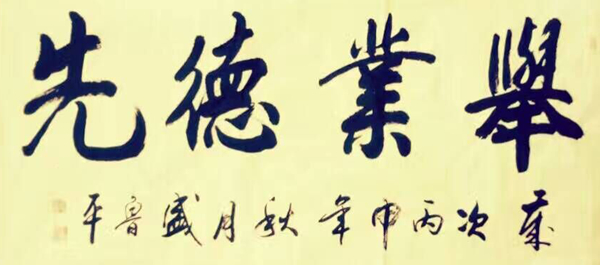 舉業德先
歲次丙申年秋月盛魯平